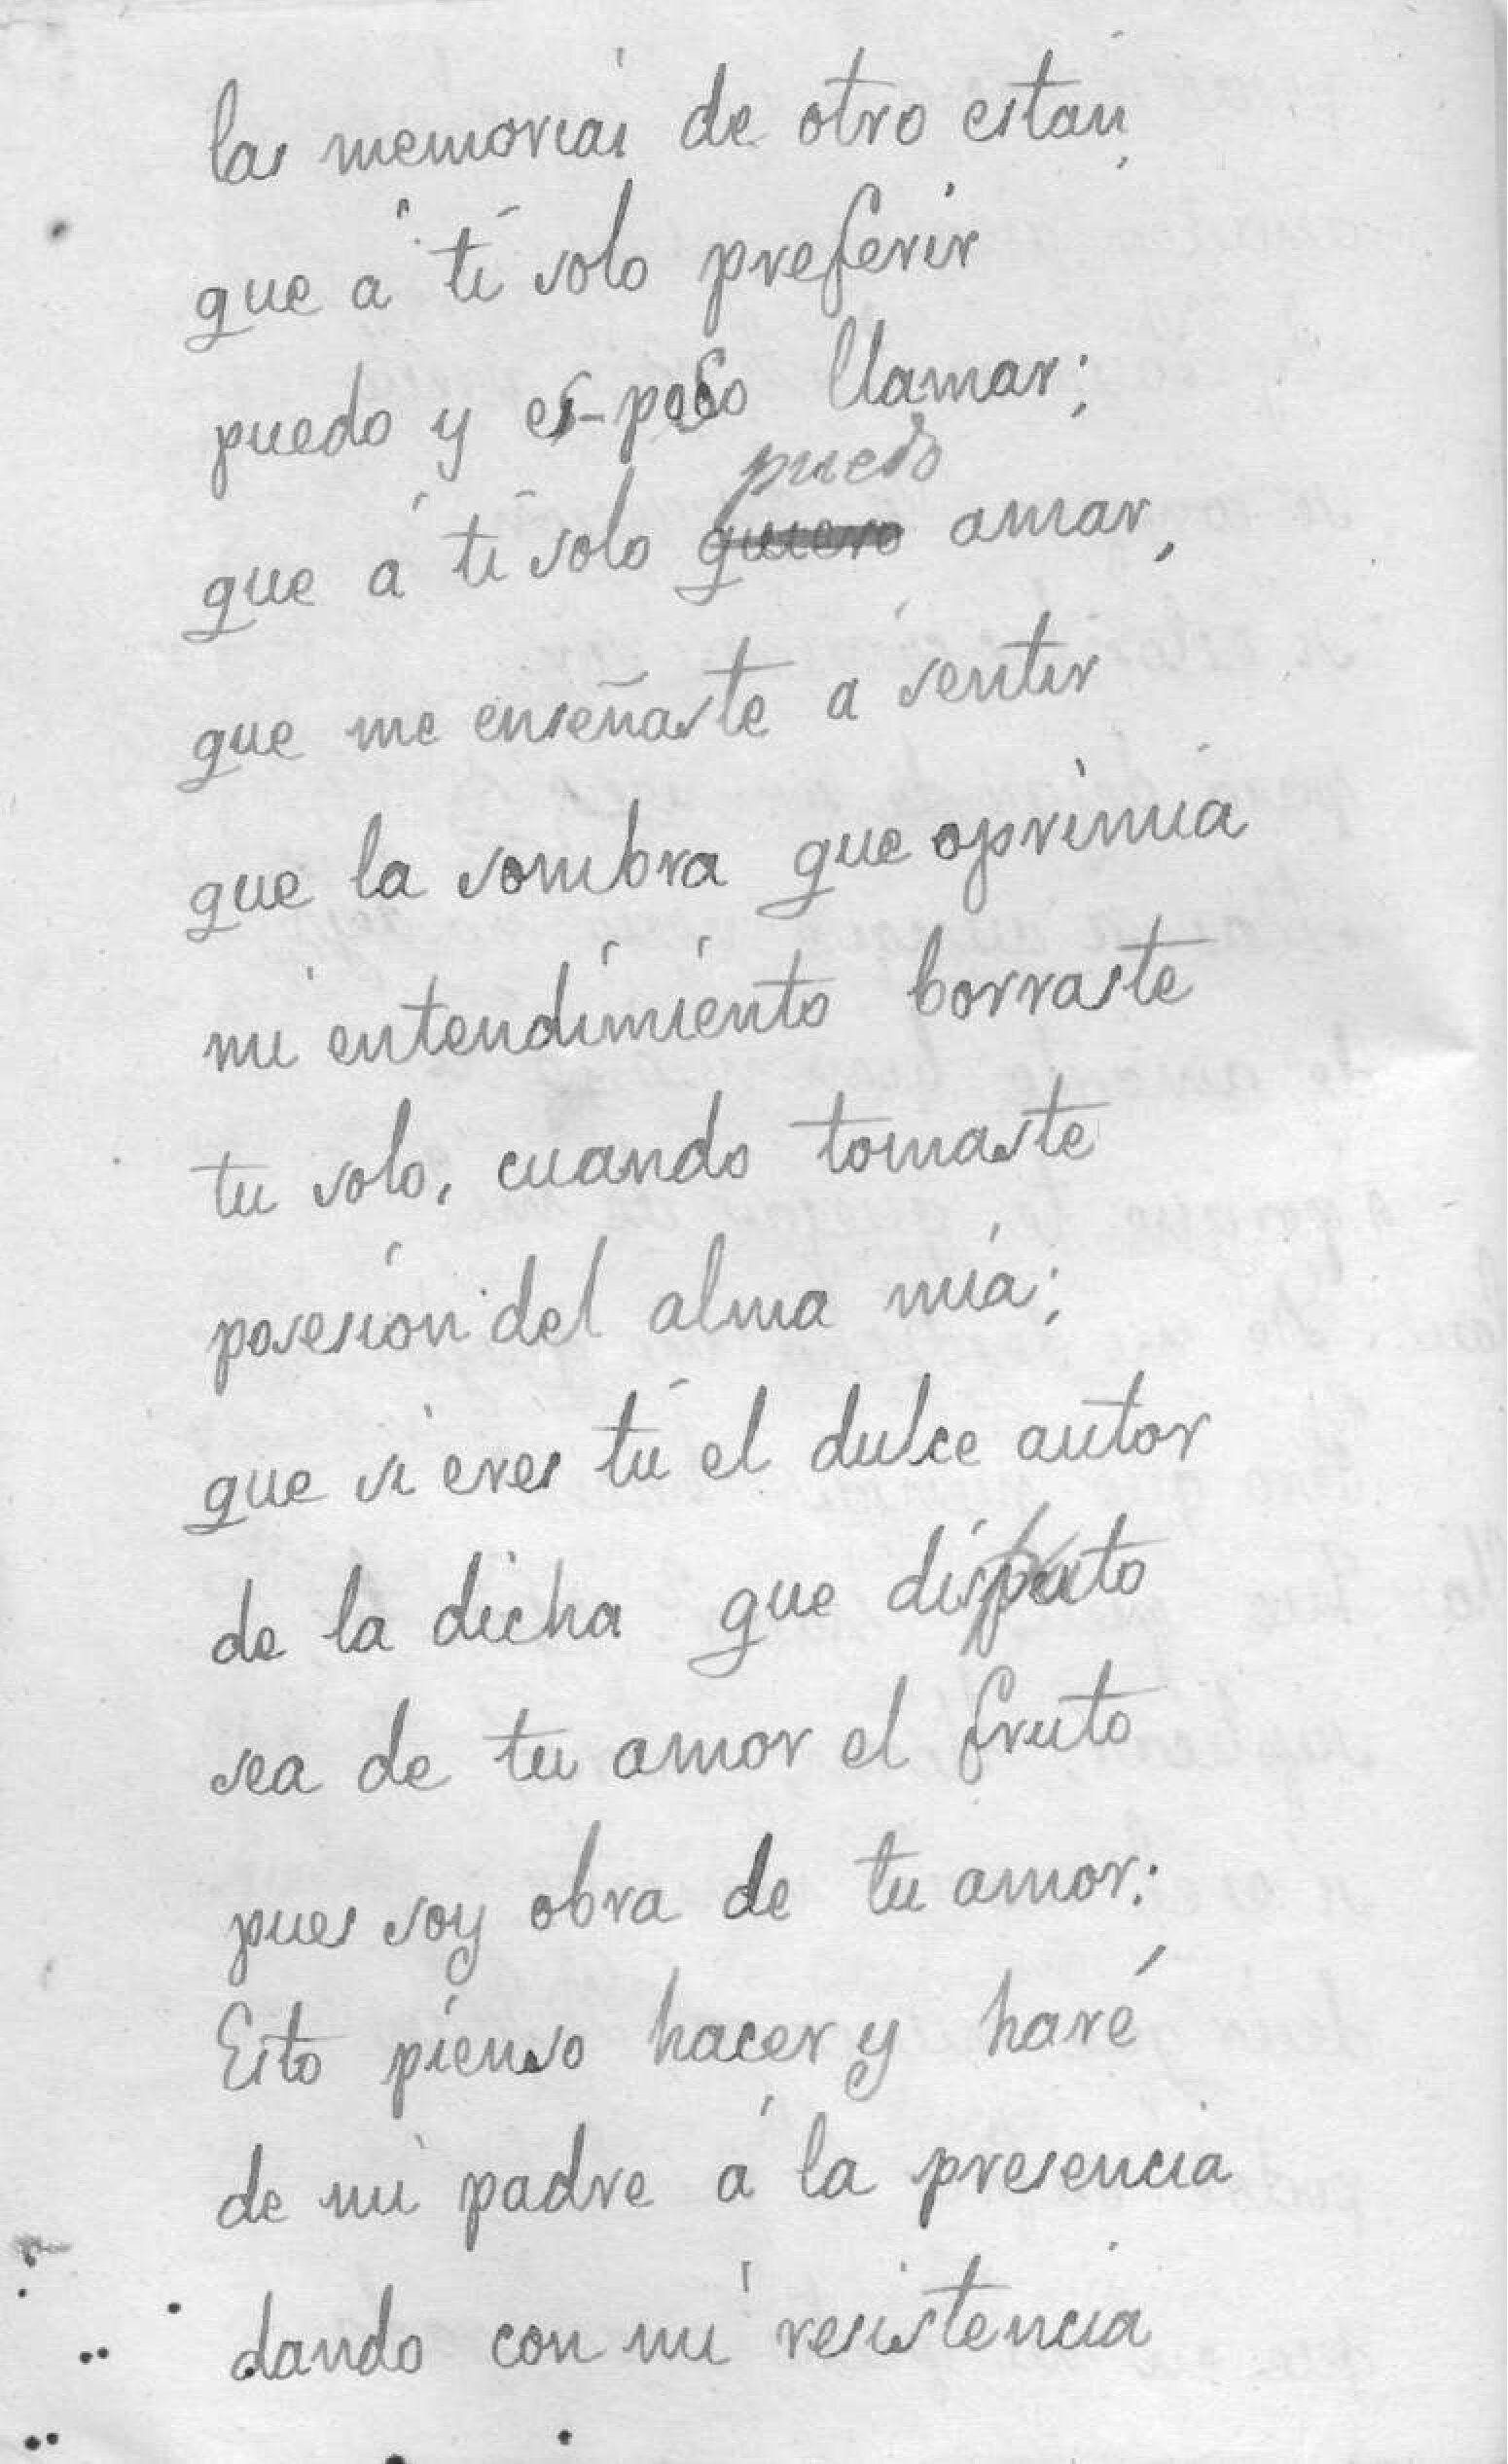 las memorias de otro están,
que á tí solo preferir
puedo y es-poso llamar;
puedo
que á tí solo quiero amar,
que me enseñaste a sentir
que la sombra que oprimia
mi entendimiento borraste
tu solo, cuando tomaste
posesión del alma mia;
que si eres tú el dulce autor
de la dicha que disputo
sea de tu amor el fruto
pues soy obra de tu amor:
Esto pienso hacer y haré
de mi padre á la presencia
dando con mi resistencia